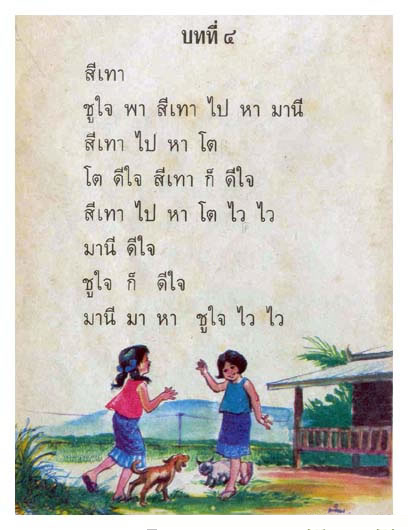 บทที่ ๔
สีเทา
ชูใจ พา สีเทา ไป หา มานี
สีเทา ไป หา โต
โต ดีใจ สีเทา ก็ ดีใจ
สีเทา ไป หา โต ไว ไว
มานี ดีใจ
ชูใจ ก็ ดีใจ
มานี มา หา ชูใจ ไว ไว